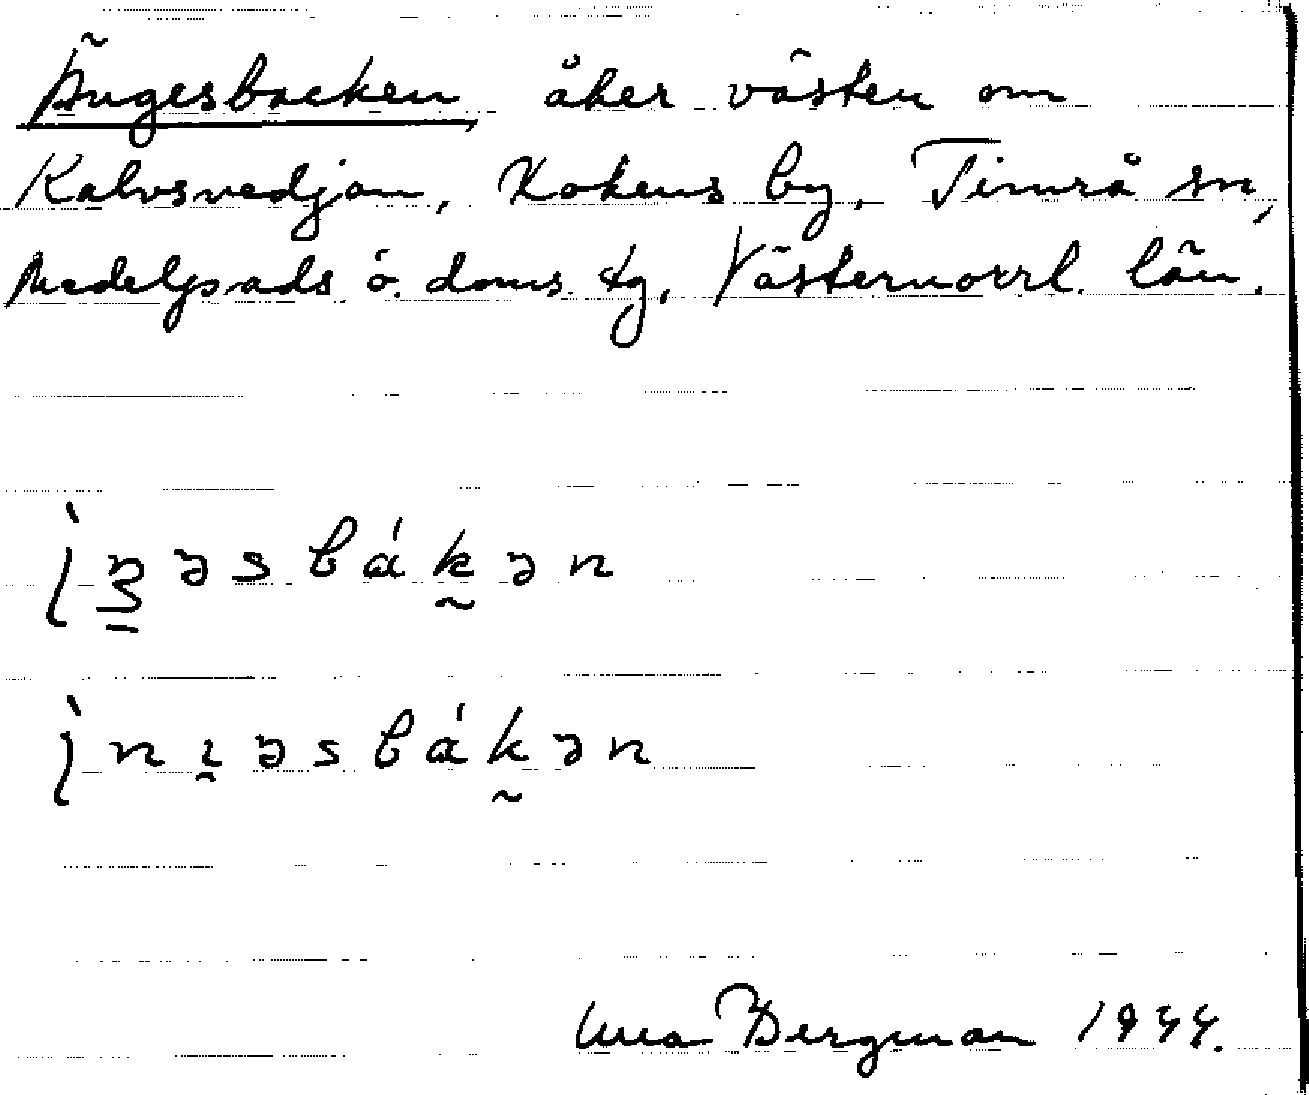 Ängesbacken, åker väster om
Kalvsvedjan, Kokens by, Timrå sn,
Medelpads ö. doms. tg, Västernorrl. län.
bákən
bákən
Bergman 1944.